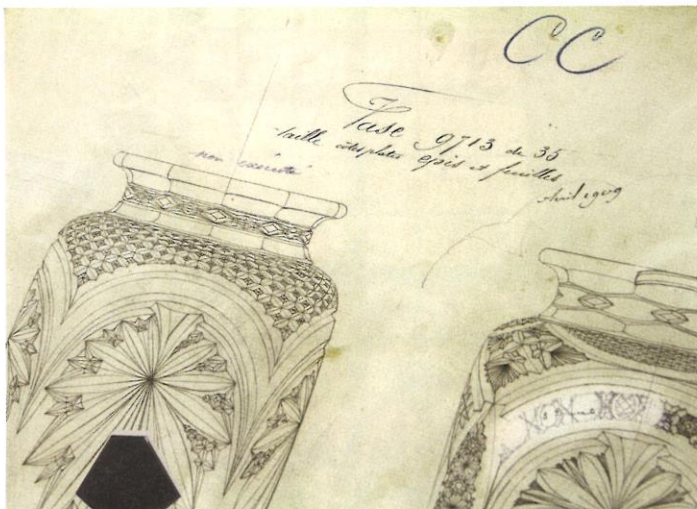 CC
Vase 9713 de 35
taille côtes plates épis et feuilles
non exécuté
avril 1909